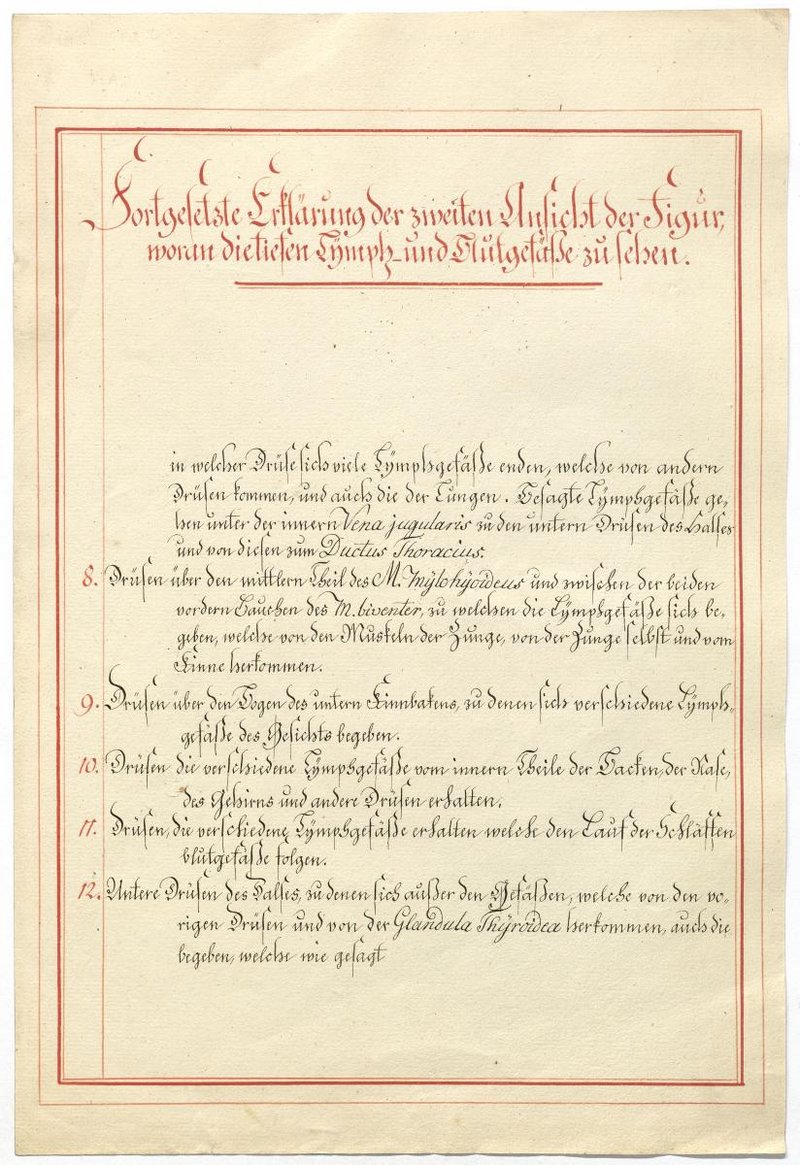 Fortgesetzte Erklärung der zweiten Ansicht der Figur,
woran die tiefen Lymph- und Blutgefäße zu sehen.
in welcher Drüse sich viele Lÿmphgefäße enden, welche von andern
Drüsen kommen, und auch die der Lungen. Gesagte Lÿmphgefäße ge-
hen unter der innern Vena jugularis zu den untern Drüsen des Halses
und von diesen zum Ductus Thoracius.
8. Drüsen über den mittlern Theil des M. Mÿlohÿoideus und zwischen der beiden
vordern Bauchen des M. biventer, zu welchen die Lÿmphgefäße sich be-
geben, welche von den Muskeln der Zunge, von der Zunge selbst und vom
Kinne herkommen.
9. Drüsen über den Bogen des untern Kinnbakens, zu denen sich verschiedene Lÿmph-
gefäße des Gesichts begeben.
10. Drüsen die verschiedene Lÿmphgefäße vom innern Theile der Backen, der Nase,
des Gehirns und andere Drüsen erhalten.
11. Drüsen, die verschiedene Lÿmphgefäße erhalten welche den Lauf der Schläffen
blutgefäße folgen.
12. Untere Drüsen des Halses, zu denen sich außer den Gefäßen, welche von den vo-
rigen Drüsen und von der Glandula Thÿroidea herkommen, auch die
begeben, welche wie gesagt